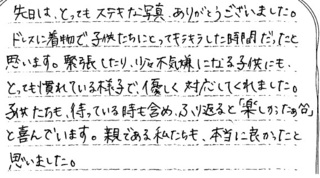 先日は、とってもステキな写真、ありがとうございました。
ドレスに着物で、子供たちにとってキラキラした時間だったと
思います。緊張したり、少々不気嫌になる子供にも、
とっても慣れている様子で、優しく対応してくれました。
子供たちも、待っている時も含め、ふり返ると「楽しかったぁ」
と喜んでいます。親である私たちも、本当に良かったと
思いました。